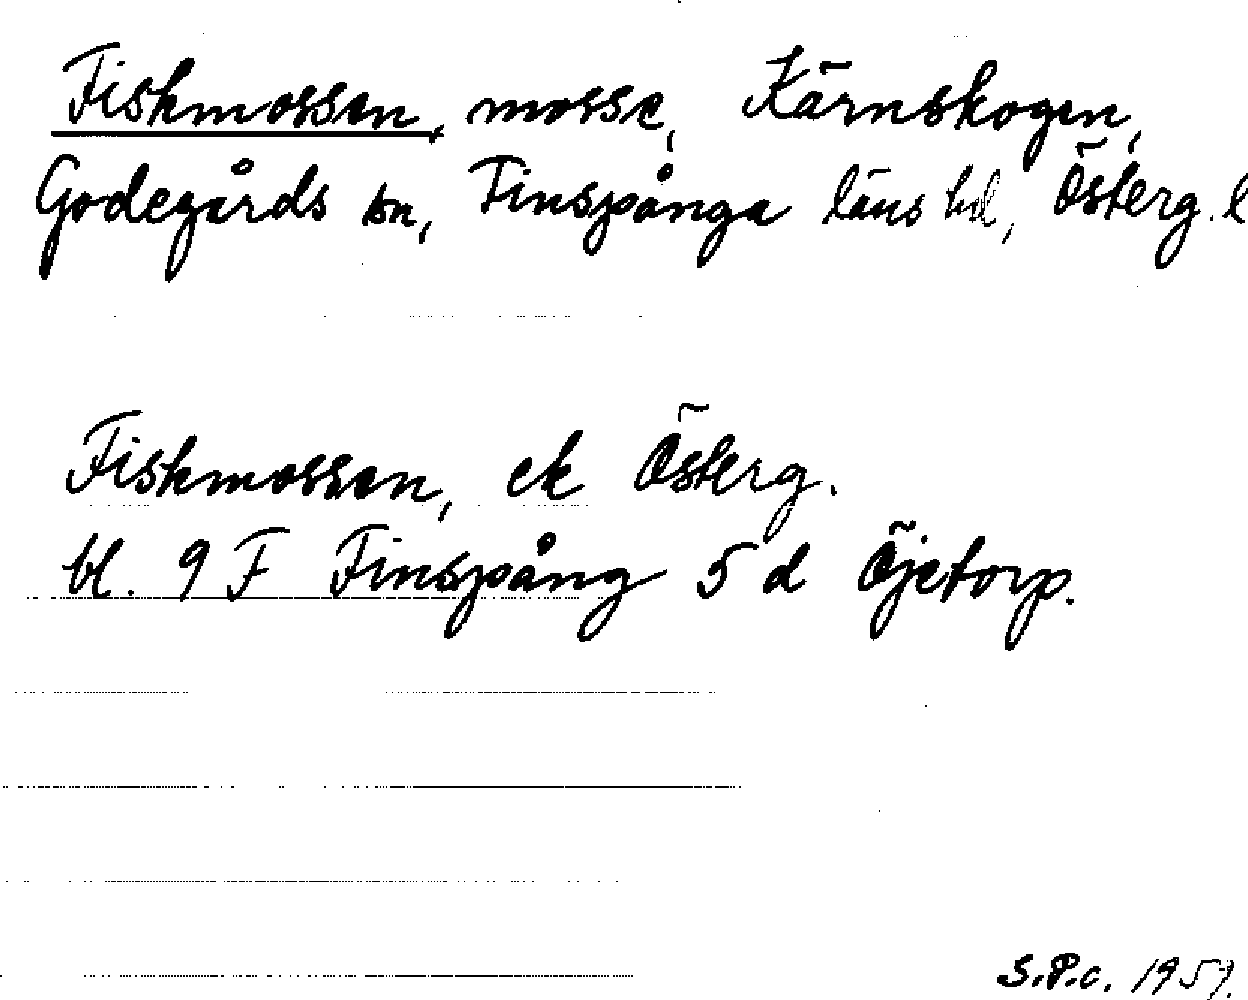 Fiskmossen, mosse, Kärnskogen,
Godegårds sn, Finspånga läns hd, Österg. l
Fiskmossen, ek Österg.
bl. 9 F Finspång 5 d Öjetorp.
S.P.c. 1959.